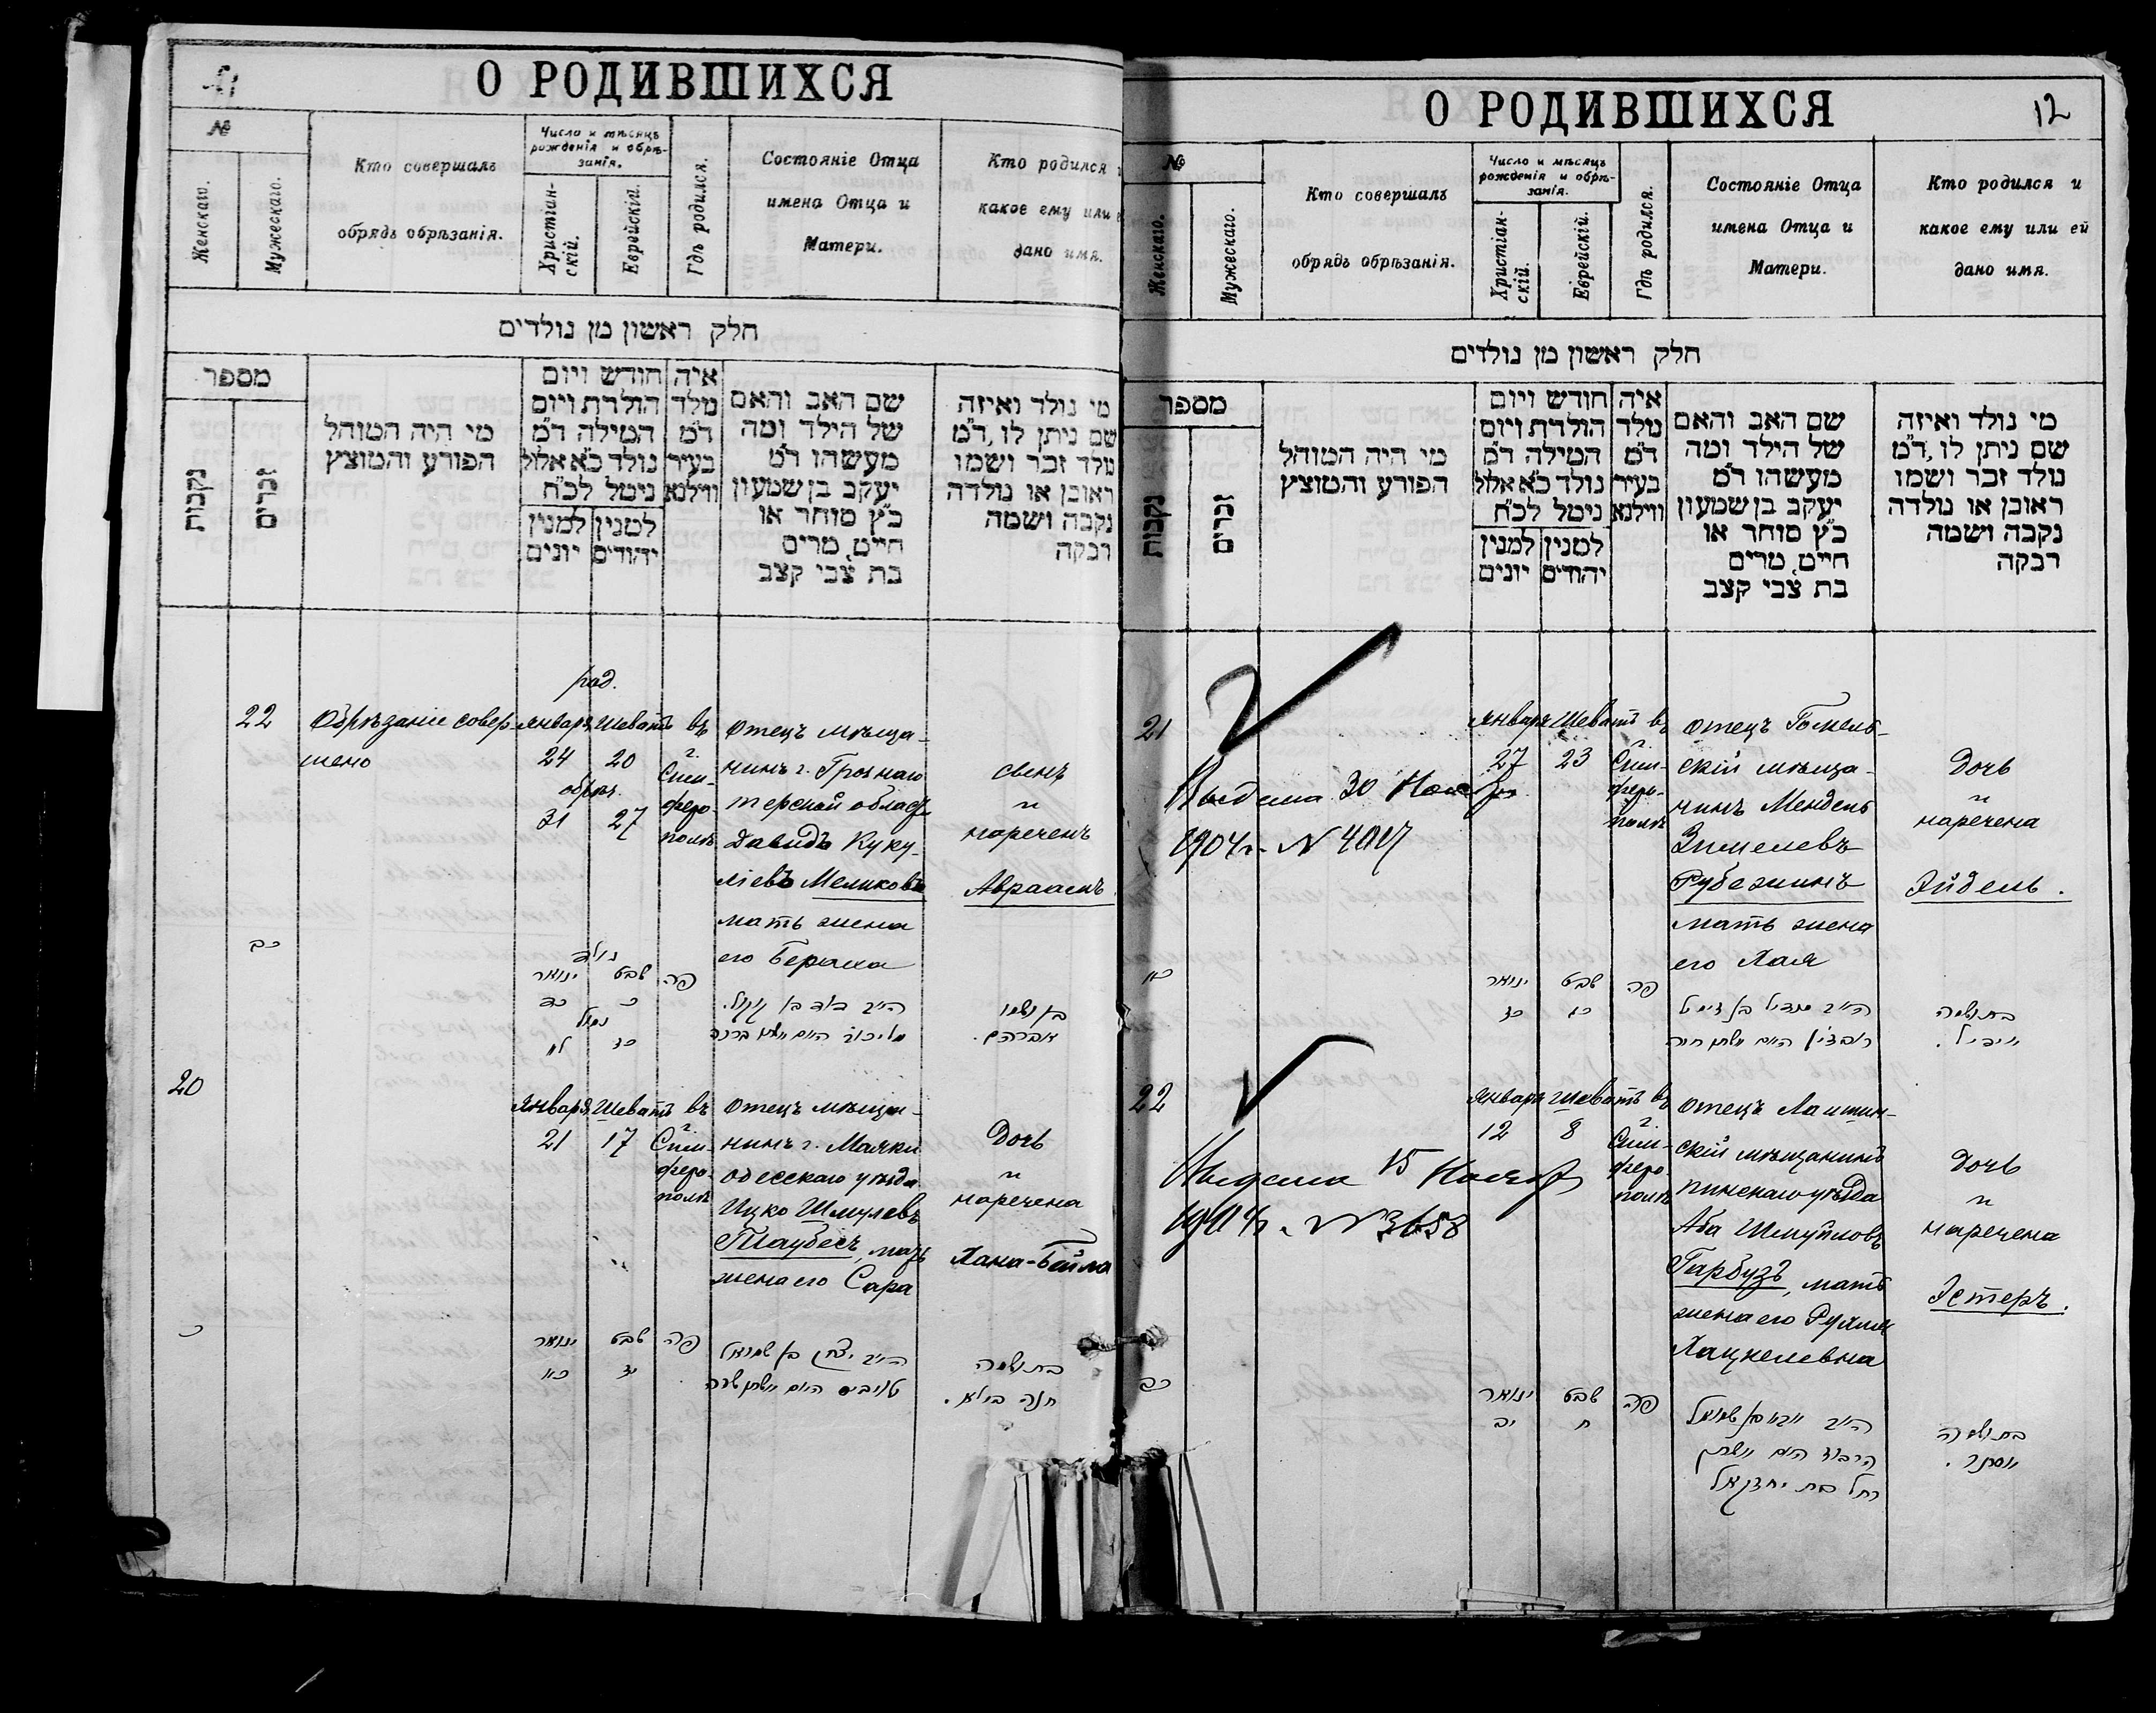 О РОДИВШИХСЯ
№
Женскаго.
Мужескаго.
Кто совершалъ
обрядъ обрѣзанія.
Число и мѣсяцъ
рожденія и обрѣ-
занія.
Христіан-
скій.
Еврейскій.
Гдѣ родился.
Состояніе Отца
имена Отца и
Матери.
Кто родился
какое ему или
дано имя.
חלק ראשון מן נולדים
מספר
נקבות
זכרים
מי היה המוהל
הפורע והמוצץ
חודש ויום
הולדת ויום
המילה ד״מ
נולד כ״א אלול
נימל לכ״ח
למנין יהודים
למנין יונים
איה
נולד
ד״מ
בעיר
ווילנא
שם האב והאם
של הילד ומה
מעשהו ד״מ
יעקב בן שמעון
כ״ץ סוחר או
חייט, מרים
בת צבי קצב
מי נולד ואיזה
שם ניתן לו, ד״מ
נולד זכר ושמו
ראובן או נולדה
נקבה ושמה
רבקה
22
Обрѣзаніе совер-
шено
род.
Январь Шеватъ
24 20
обрѣз.
31 27
въ
г.
Сим-
феро-
полѣ
отецъ мѣща-
нинъ г. Грознаго
терской област
Давидъ Куку-
ліевъ Меликовъ
мать жена
его Бераха
сынъ
и
нареченъ
Авраамъ.
כב
נולד
ינואר שבט פה
כד כ
נימול
לא כז
האב דוד בן
האם אשתו ברכה
בן ושמו
אברהם.
20
Январь Шеватъ
21 17
въ
г.
Сим-
феро-
полѣ
отецъ мѣща-
нинъ г. Маяки
одесскаго уѣзда
Ицко Шмулевъ
Таубесъ, мать
жена его Сара
Дочь
и
наречена
Хана-Бейла
כ
ינואר שבט פה
כא יז
האב יצחק בן שמואל
טויביס האם אשתו שרה
בת ושמה
חנה ביילא.
О РОДИВШИХСЯ
12
№
Женскаго.
Мужескаго.
Кто совершалъ
обрядъ обрѣзанія.
Число и мѣсяцъ
рожденія и обрѣ-
занія.
Христіан-
скій.
Еврейскій.
Гдѣ родился.
Состояніе Отца
имена Отца и
Матери.
Кто родился и
какое ему или ей
дано имя.
חלק ראשון מן נולדים
מספר
נקבות
זכרים
מי היה המוהל
הפורע והמוצץ
חודש ויום
הולדת ויום
המילה ד״מ
נולד כ״א אלול
נימל לכ״ח
למנין יהודים
למנין יונים
איה
נולד
ד״מ
בעיר
ווילנא
שם האב והאם
של הילד ומה
מעשהו ד״מ
יעקב בן שמעון
כ״ץ סוחר או
חייט, מרים
בת צבי קצב
מי נולד ואיזה
שם ניתן לו, ד״מ
נולד זכר ושמו
ראובן או נולדה
נקבה ושמה
רבקה
21
Выдана 30 Ноября
1904 г. N 4017
Январь Шеватъ
27 23
въ
г.
Сим-
феро-
полѣ
отецъ Гомель-
скій мѣща-
нинъ Мендель
Зимелевъ
Рубежинъ
мать жена
его Хая
Дочь
и
наречена
Эйдель.
כא
ינואר שבט פה
כז כג
האב מנדיל בן זימל
האם אשתו חיה
בת ושמה
איידיל.
22
Выдана 15 Ноября
1904 г. N 3658
Январь Шеватъ
12 8
въ
г.
Сим-
феро-
полѣ
отецъ Лашин-
скій мѣщанинъ
пинскаго уѣзда
Аба Шмуйловъ
Гарбузъ, мать
жена его Рухля
Хацкелевна
Дочь
и
наречена
Эстеръ.
כב
ינואר שבט פה
יב ח
האב אבא בן שמואל
הרבוז האם אשתו
רחל בת יחזקאל
בת ושמה
אסתר.